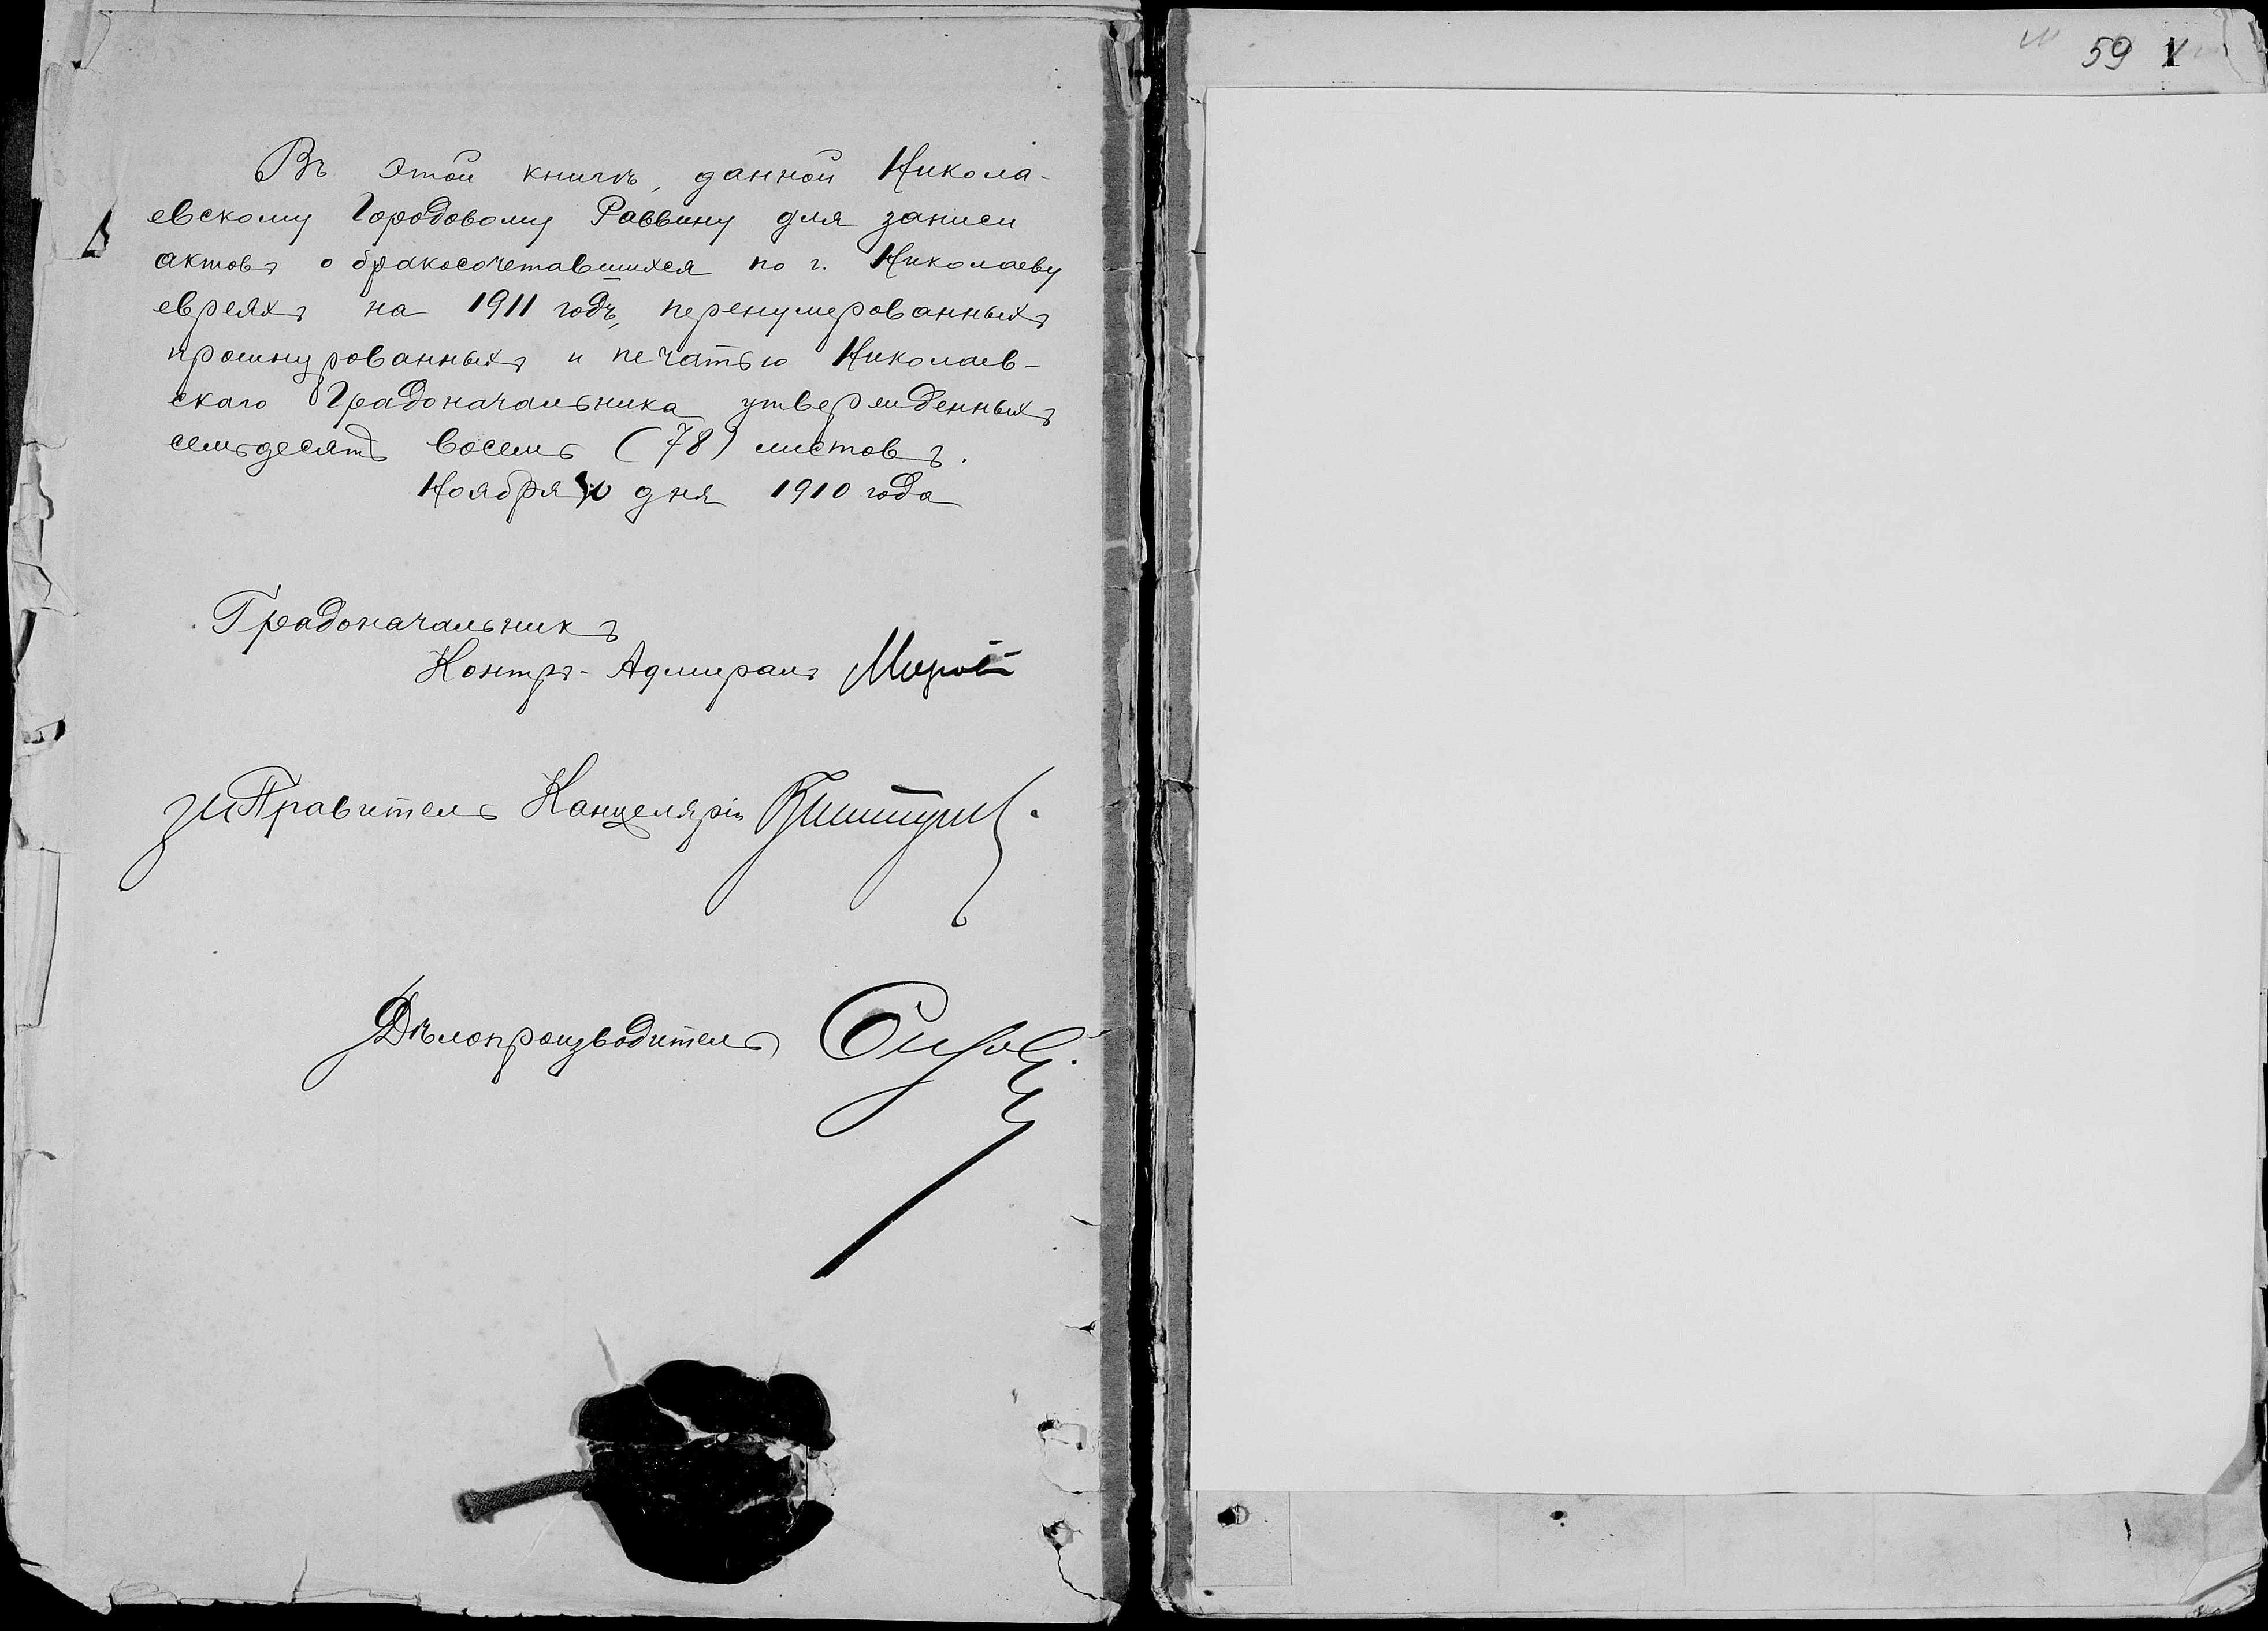 Въ этой книгѣ, данной Никола-
евскому Городовому Раввину для записи
актовъ о бракосочетавшихся по г. Николаеву
евреяхъ на 1911 годъ, перенумерованныхъ
прошнурованныхъ и печатью Николаев-
скаго Градоначальника утвержденныхъ
семьдесятъ восемь (78) листовъ.
Ноября дня 1910 года
Градоначальникъ
Контръ-Адмиралъ
Правитель Канцеляріи
Дѣлопроизводитель
59